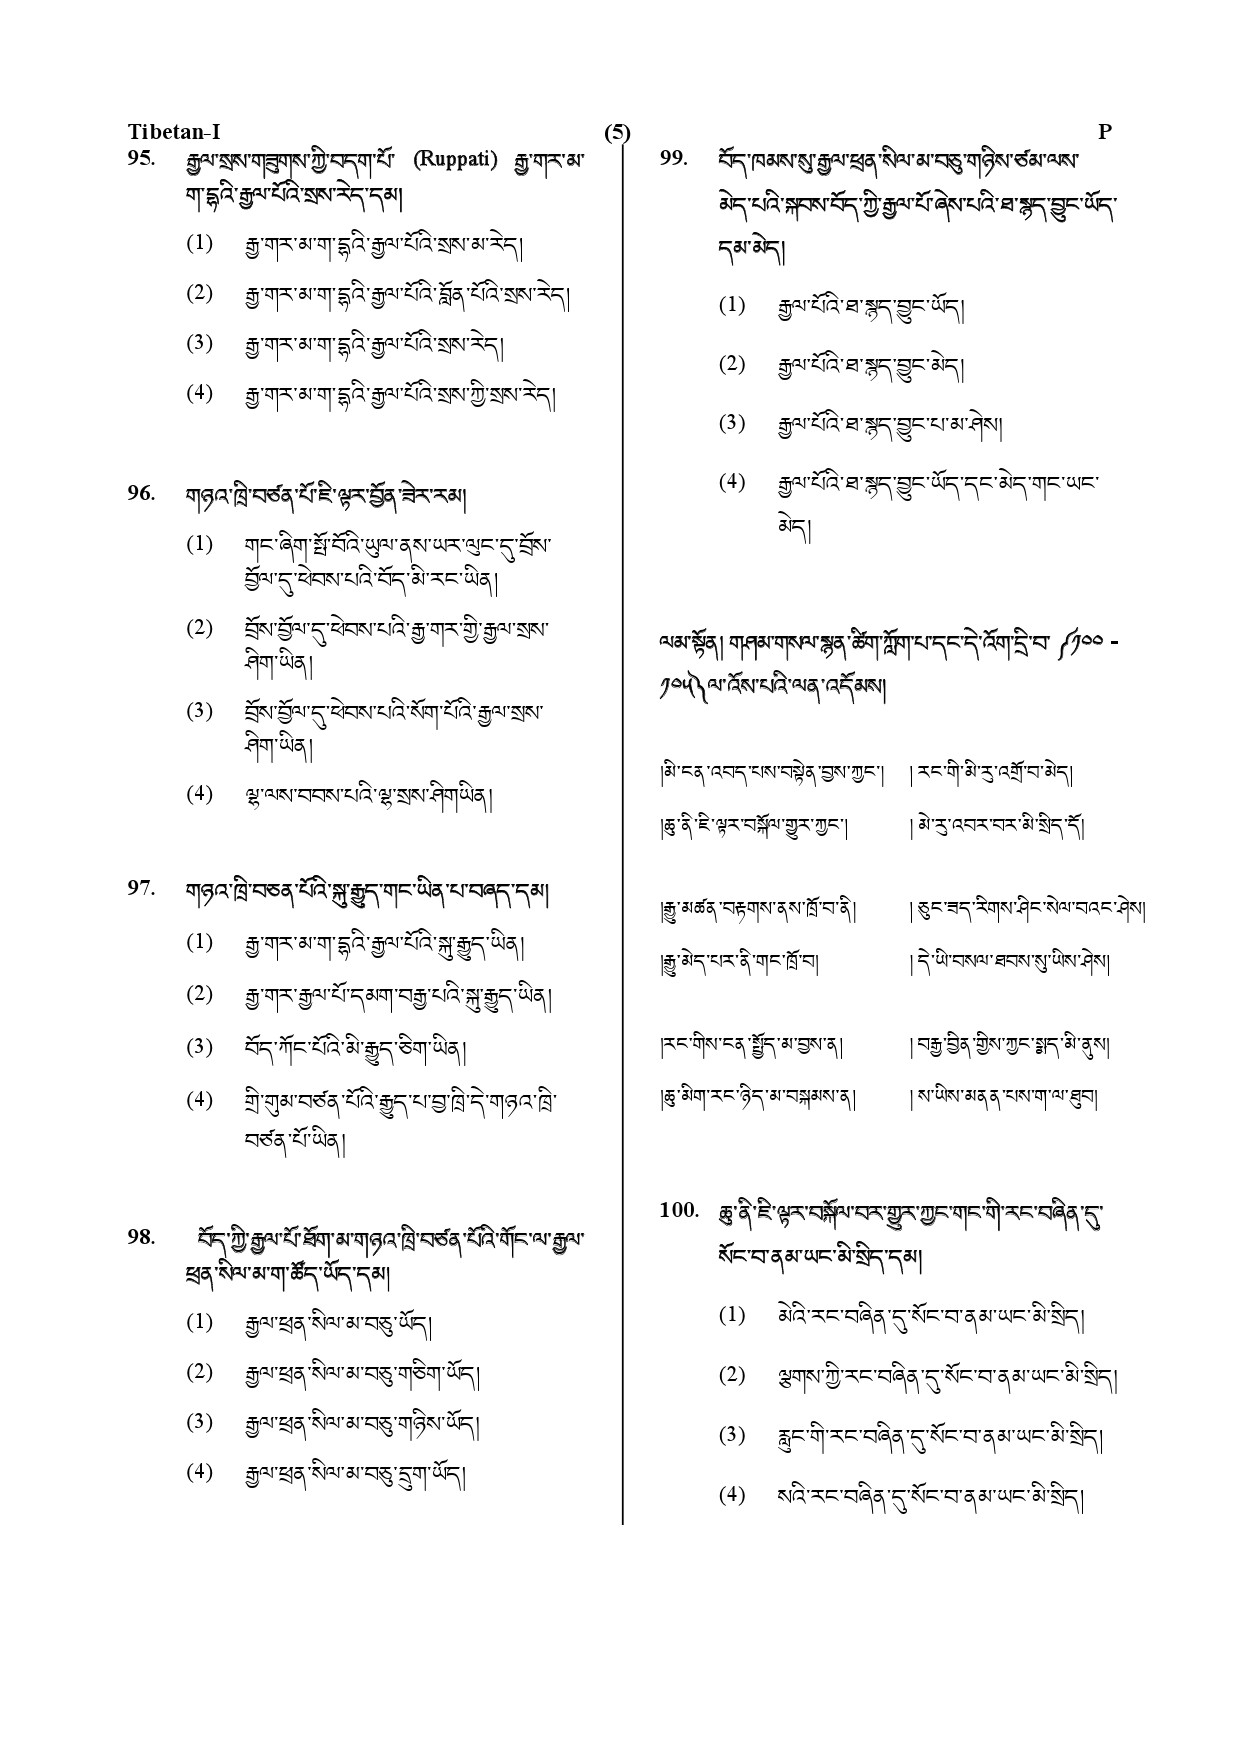 Tibetan-I (5) P
95. རྒྱལ་སྲས་གཟུགས་ཀྱི་བདག་པོ་ (Ruppati) རྒྱ་གར་མ་
ག་དྷའི་རྒྱལ་པོའི་སྲས་རེད་དམ།
(1) རྒྱ་གར་མ་ག་དྷའི་རྒྱལ་པོའི་སྲས་མ་རེད།
(2) རྒྱ་གར་མ་ག་དྷའི་རྒྱལ་པོའི་བློན་པོའི་སྲས་རེད།
(3) རྒྱ་གར་མ་ག་དྷའི་རྒྱལ་པོའི་སྲས་རེད།
(4) རྒྱ་གར་མ་ག་དྷའི་རྒྱལ་པོའི་སྲས་ཀྱི་སྲས་རེད།
96. གཉའ་ཁྲི་བཙན་པོ་ཇི་ལྟར་བྱོན་ཟེར་རམ།
(1) གང་ཞིག་སྤོ་བོའི་ཡུལ་ནས་ཡར་ལུང་དུ་བྲོས་
བྱོལ་དུ་ཕེབས་པའི་བོད་མི་རང་ཡིན།
(2) བྲོས་བྱོལ་དུ་ཕེབས་པའི་རྒྱ་གར་གྱི་རྒྱལ་སྲས་
ཤིག་ཡིན།
(3) བྲོས་བྱོལ་དུ་ཕེབས་པའི་སོག་པོའི་རྒྱལ་སྲས་
ཤིག་ཡིན།
(4) ལྷ་ལས་བབས་པའི་ལྷ་སྲས་ཤིགཡིན།
97. གཉའ་ཁྲི་བཅན་པོའི་སྐུ་རྒྱུད་གང་ཡིན་པ་བཞད་དམ།
(1) རྒྱ་གར་མ་ག་དྷའི་རྒྱལ་པོའི་སྐུ་རྒྱུད་ཡིན།
(2) རྒྱ་གར་རྒྱལ་པོ་དམག་བརྒྱ་པའི་སྐུ་རྒྱུད་ཡིན།
(3) བོད་ཀོང་པོའི་མི་རྒྱུད་ཅིག་ཡིན།
(4) གྲི་གུམ་བཙན་པོའི་རྒྱུད་པ་བྱ་ཁྲི་དེ་གཉའ་ཁྲི་
བཙན་པོ་ཡིན།
98. བོད་ཀྱི་རྒྱལ་པོ་ཐོག་མ་གཉའ་ཁྲི་བཙན་པོའི་གོང་ལ་རྒྱལ་
ཕྲན་སིལ་མ་ག་ཚོད་ཡོད་དམ།
(1) རྒྱལ་ཕྲན་སིལ་མ་བཅུ་ཡོད།
(2) རྒྱལ་ཕྲན་སིལ་མ་བཅུ་གཅིག་ཡོད།
(3) རྒྱལ་ཕྲན་སིལ་མ་བཅུ་གཉིས་ཡོད།
(4) རྒྱལ་ཕྲན་སིལ་མ་བཅུ་དྲུག་ཡོད།
99. བོད་ཁམས་སུ་རྒྱལ་ཕྲན་སིལ་མ་བཅུ་གཉིས་ཙམ་ལས་
མེད་པའི་སྐབས་བོད་ཀྱི་རྒྱལ་པོ་ཞེས་པའི་ཐ་སྙད་བྱུང་ཡོད་
དམ་མེད།
(1) རྒྱལ་པོའི་ཐ་སྙད་བྱུང་ཡོད།
(2) རྒྱལ་པོའི་ཐ་སྙད་བྱུང་མེད།
(3) རྒྱལ་པོའི་ཐ་སྙད་བྱུང་པ་མ་ཤེས།
(4) རྒྱལ་པོའི་ཐ་སྙད་བྱུང་ཡོད་དང་མེད་གང་ཡང་
མེད།
ལམ་སྟོན། གཤམ་གསལ་སྙན་ཚིག་ཀློག་པ་དང་དེ་འོག་དྲི་བ་ ༼༡༠༠ -
༡༠༥༽ལ་འོས་པའི་ལན་འདོམས།
།མི་ངན་འབད་པས་བསྟེན་བྱས་ཀྱང་། ། རང་གི་མི་རུ་འགྲོ་བ་མེད།
།ཆུ་ནི་ཇི་ལྟར་བསྐོལ་གྱུར་ཀྱང་། ། མེ་རུ་འབར་བར་མི་སྲིད་དོ།
།རྒྱུ་མཚན་བརྟགས་ནས་ཁྲོ་བ་ནི། ། ཅུང་ཟད་རིགས་ཤིང་སེལ་བའང་ཤེས།
།རྒྱུ་མེད་པར་ནི་གང་ཁྲོ་བ། ། དེ་ཡི་བསལ་ཐབས་སུ་ཡིས་ཤེས།
།རང་གིས་ངན་སྤྱོད་མ་བྱས་ན། ། བརྒྱ་བྱིན་གྱིས་ཀྱང་སྨད་མི་ནུས།
།ཆུ་མིག་རང་ཉིད་མ་བསྐམས་ན། ། ས་ཡིས་མནན་པས་ག་ལ་ཐུབ།
100. ཆུ་ནི་ཇི་ལྟར་བསྐོལ་བར་གྱུར་ཀྱང་གང་གི་རང་བཞིན་དུ་
སོང་བ་ནམ་ཡང་མི་སྲིད་དམ།
(1) མེའི་རང་བཞིན་དུ་སོང་བ་ནམ་ཡང་མི་སྲིད།
(2) ལྕགས་ཀྱི་རང་བཞིན་དུ་སོང་བ་ནམ་ཡང་མི་སྲིད།
(3) རླུང་གི་རང་བཞིན་དུ་སོང་བ་ནམ་ཡང་མི་སྲིད།
(4) སའི་རང་བཞིན་དུ་སོང་བ་ནམ་ཡང་མི་སྲིད།